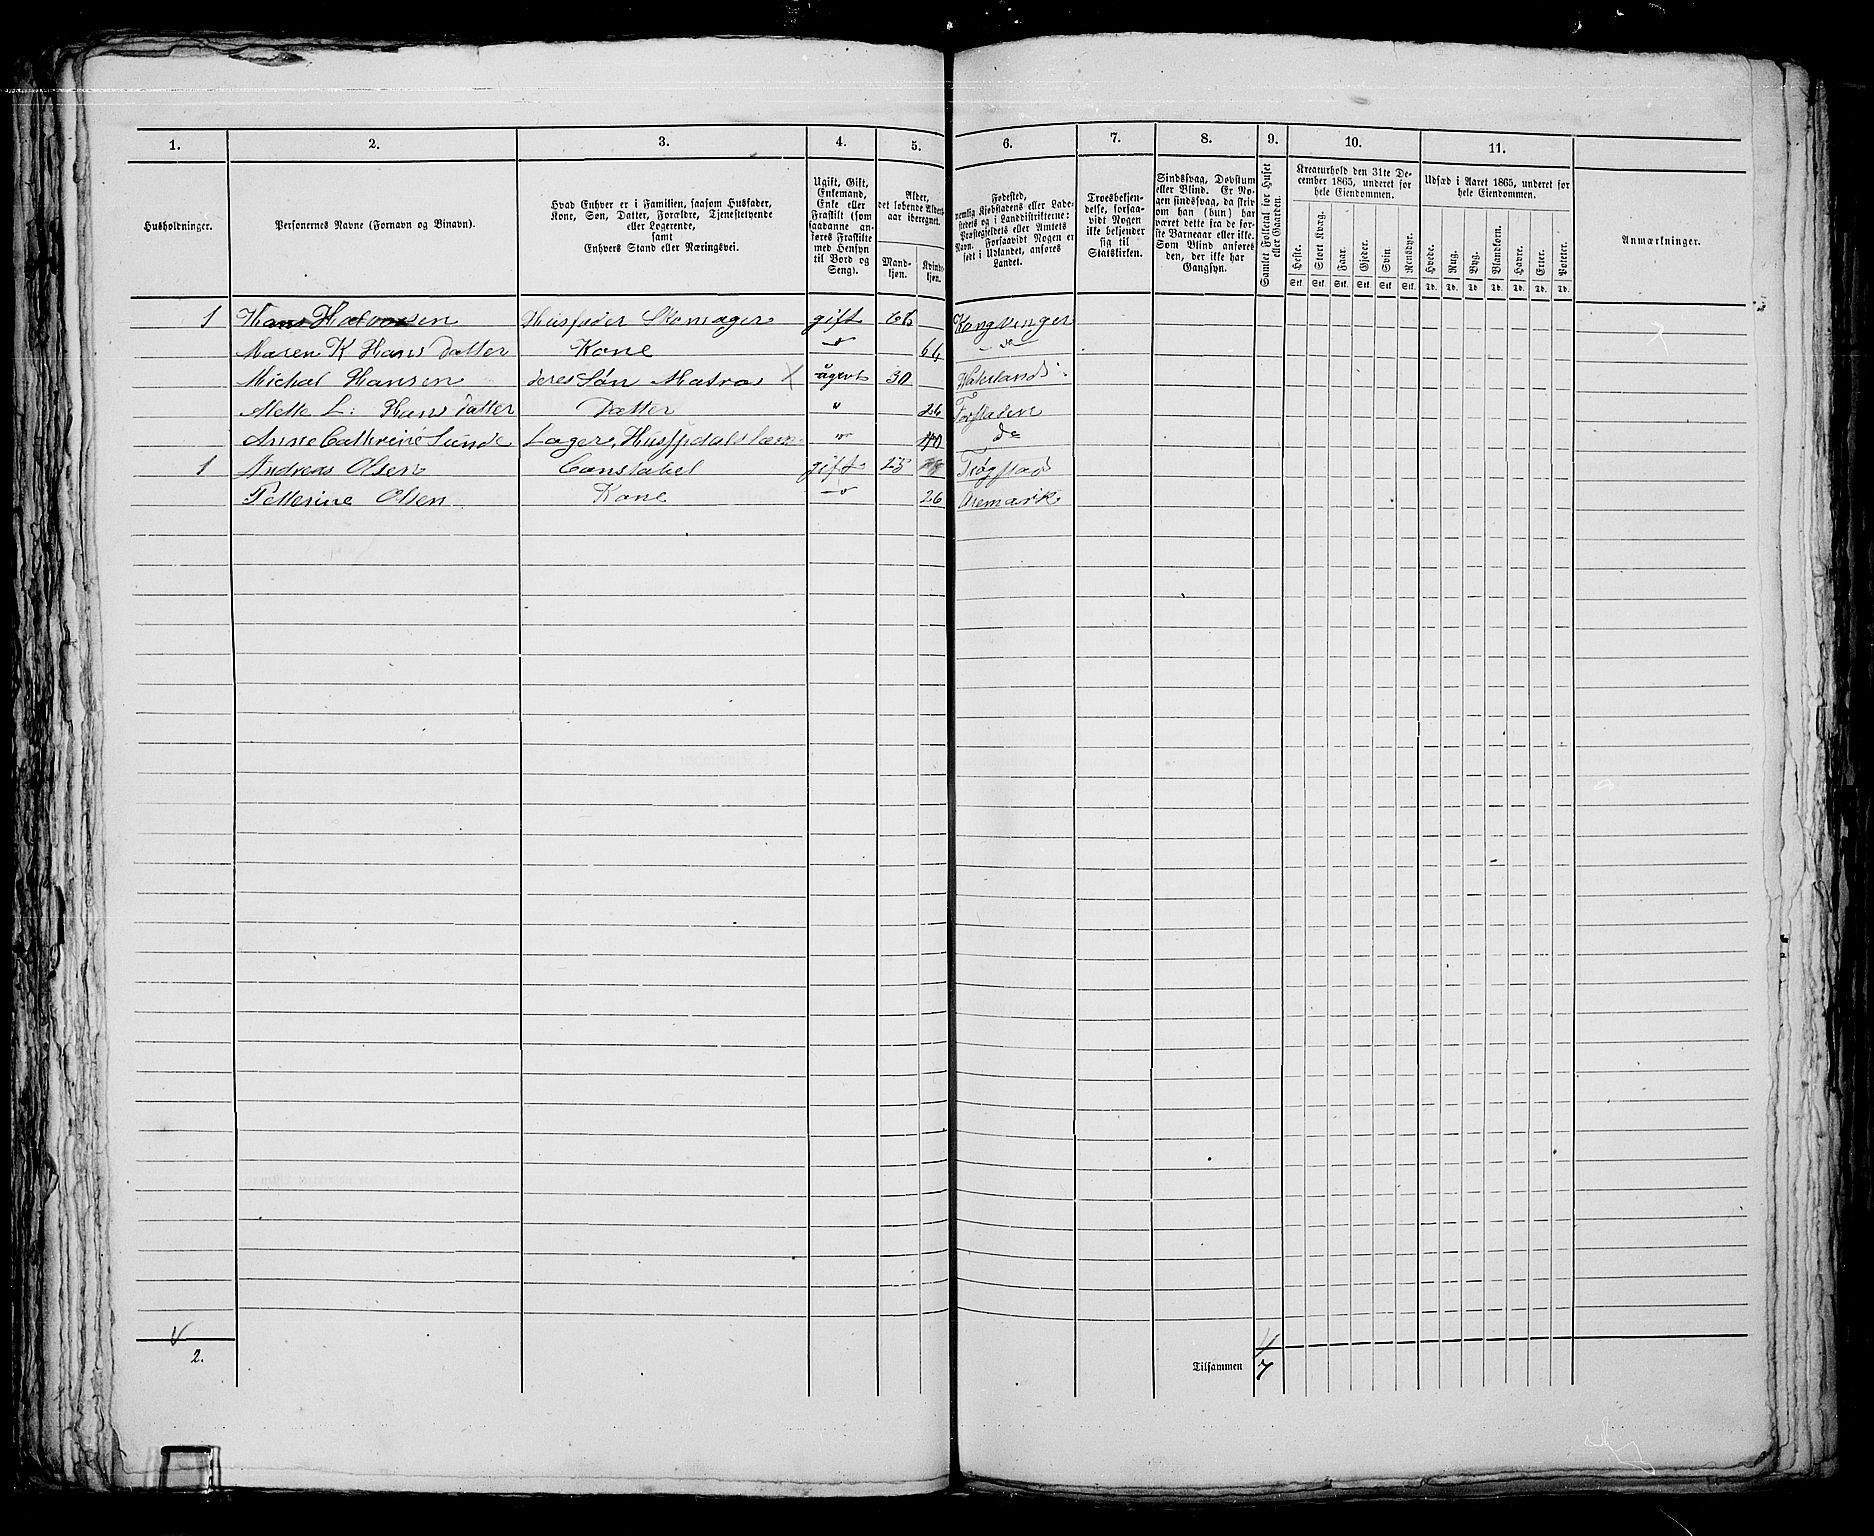 1. 2. 3. 4. 5. 6. 7. 8. 9. 10. 11.
Husholdninger.
Personernes Navne (Fornavn og Binavn).
Hvad Enhver er i Familien, saasom Husfader,
Kone, Søn, Datter, Forældre, Tjenestetyende
eller Logerende,
samt
Enhvers Stand eller Næringsvei.
Ugift, Gift,
Enkemand,
Enke eller
Fraskilt (som
saadanne an-
føres Fraskilte
med Hensyn
til Bord og
Seng).
Alder,
det løbende Alders-
aar iberegnet.
Mand-
kjøn.
Kvind-
kjøn.
Fødested,
nemlig Kjøbstadens eller Lade-
stedets og i Landdistrikterne:
Præstegjeldets eller Amtets
Navn. Forsaavidt Nogen er
født i Udlandet, anføres
Landet.
Troesbekjen-
delse, forsaa-
vidt Nogen
ikke bekjender
sig til
Statskirken.
Sindssvag, Døvstum
eller Blind. Er No-
gen sindssvag, da skriv
om han (hun) har
været dette fra de før-
ste Barneaar eller ikke.
Som Blind anføres
den, der ikke har
Gangsyn.
Samlet Folketal for Huset
eller Gaarden.
Kreaturhold den 31te De-
cember 1865, underet for
hele Eiendommen.
Heste. Stort Kvæg. Faar. Gjeder. Svin. Rensdyr.
Stk. Stk. Stk. Stk. Stk. Stk.
Udsæd i Aaret 1865, underet for
hele Eiendommen.
Hvede. Rug. Byg. Blandkorn. Havre. Erter. Poteter.
Td. Td. Td. Td. Td. Td. Td.
Anmærkninger.
1 Hans Halvorsen Husfader Skomager gift Kongsvinger
Maren K Hans Datter Kone 64
Michal Hansen deres Søn Matros X ugivt 30
Mette L: Hans Datter Datter " 26
Anne Cathrine Lunde " 40 do
1 Andreas Olsen Constabel gift 25 Trøgstad
Petterine Olsen Kone 26 Aremark
2.
Tilsammen 7